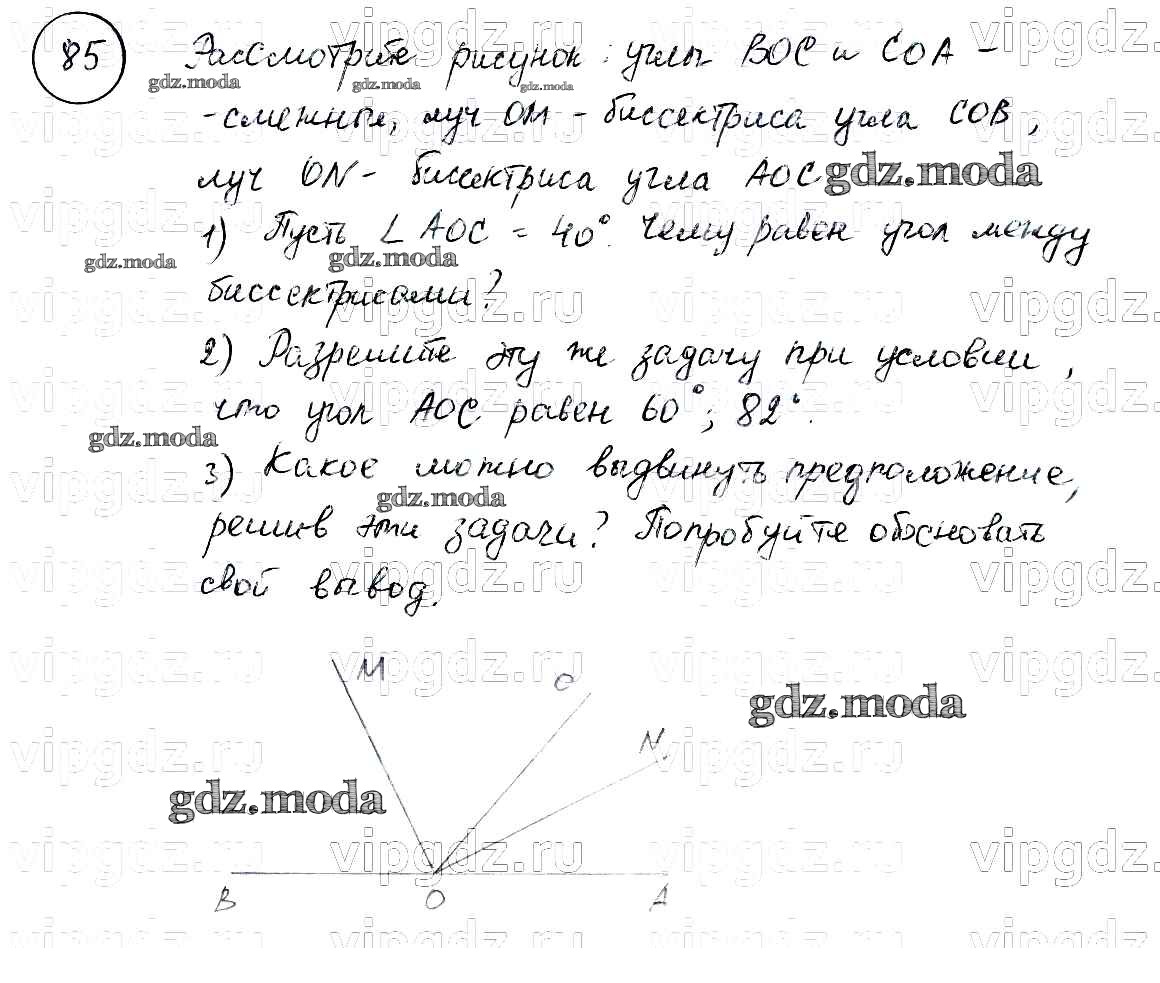 85 Рассмотрите рисунок: углы BOC и COA -
- смежные, луч OM - биссектриса угла COB,
луч ON - биссектриса угла AOC
1) Пусть ∠AOC = 40°. Чему равен угол между
биссектрисами?
2) Разрешите эту же задачу при условии,
что угол AOC равен 60°; 82°.
3) Какое можно выдвинуть предположение,
решив эти задачи? Попробуйте обосновать
свой вывод.
M
C
N
B O A